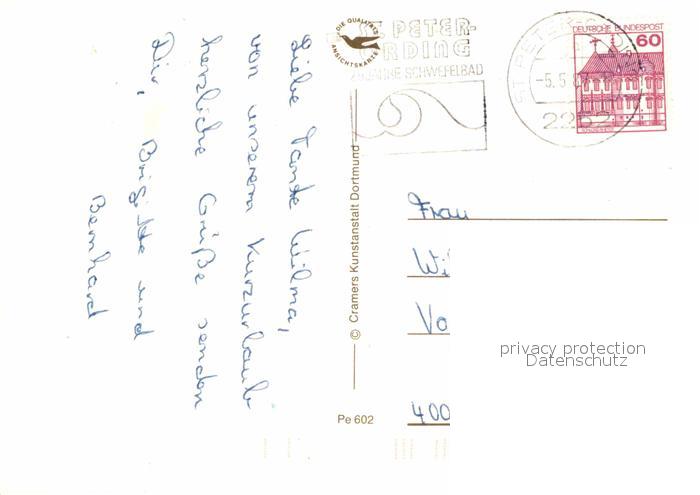 Liebe Tante Wilma,
von unserem Kurzurlaub
herzliche Grüße senden
Dir, Brigitte und
Bernhard
DIE QUALITÄTS
ANSICHTSKARTE
ST. PETER-
ORDING
SCHWEFELBAD
ST. PETER-ORDING
-5.5.87
2252
DEUTSCHE BUNDESPOST
60
© Cramers Kunstanstalt Dortmund
Pe 602
Frau
Wi
Vo
400
privacy protection
Datenschutz